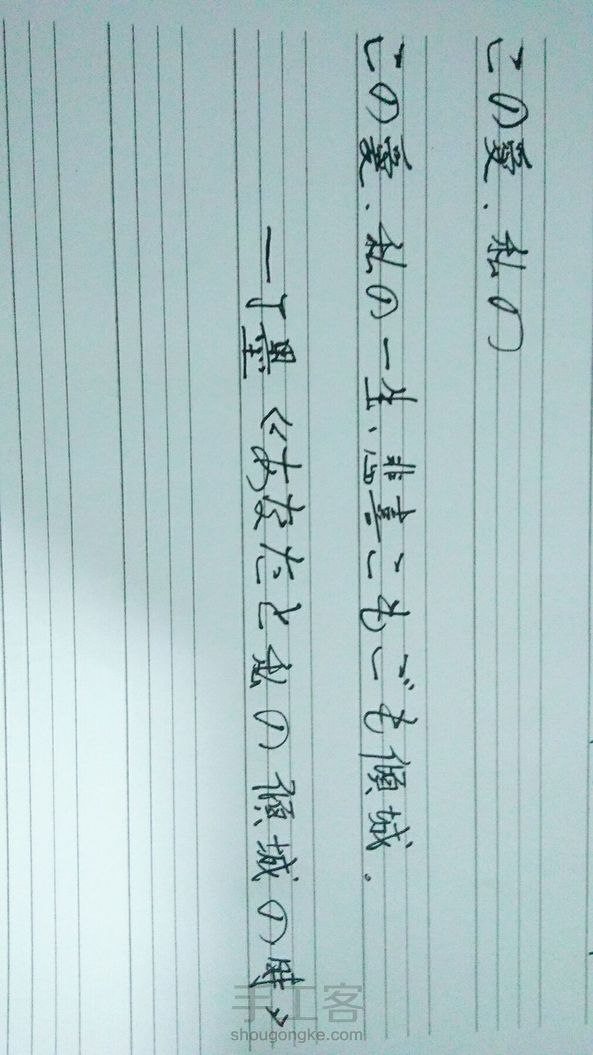 この愛.私の
この愛.私の一生、悲喜こもごも傾城.
—丁墨《あなたと私の傾城の時》
手工客
shougongke.com